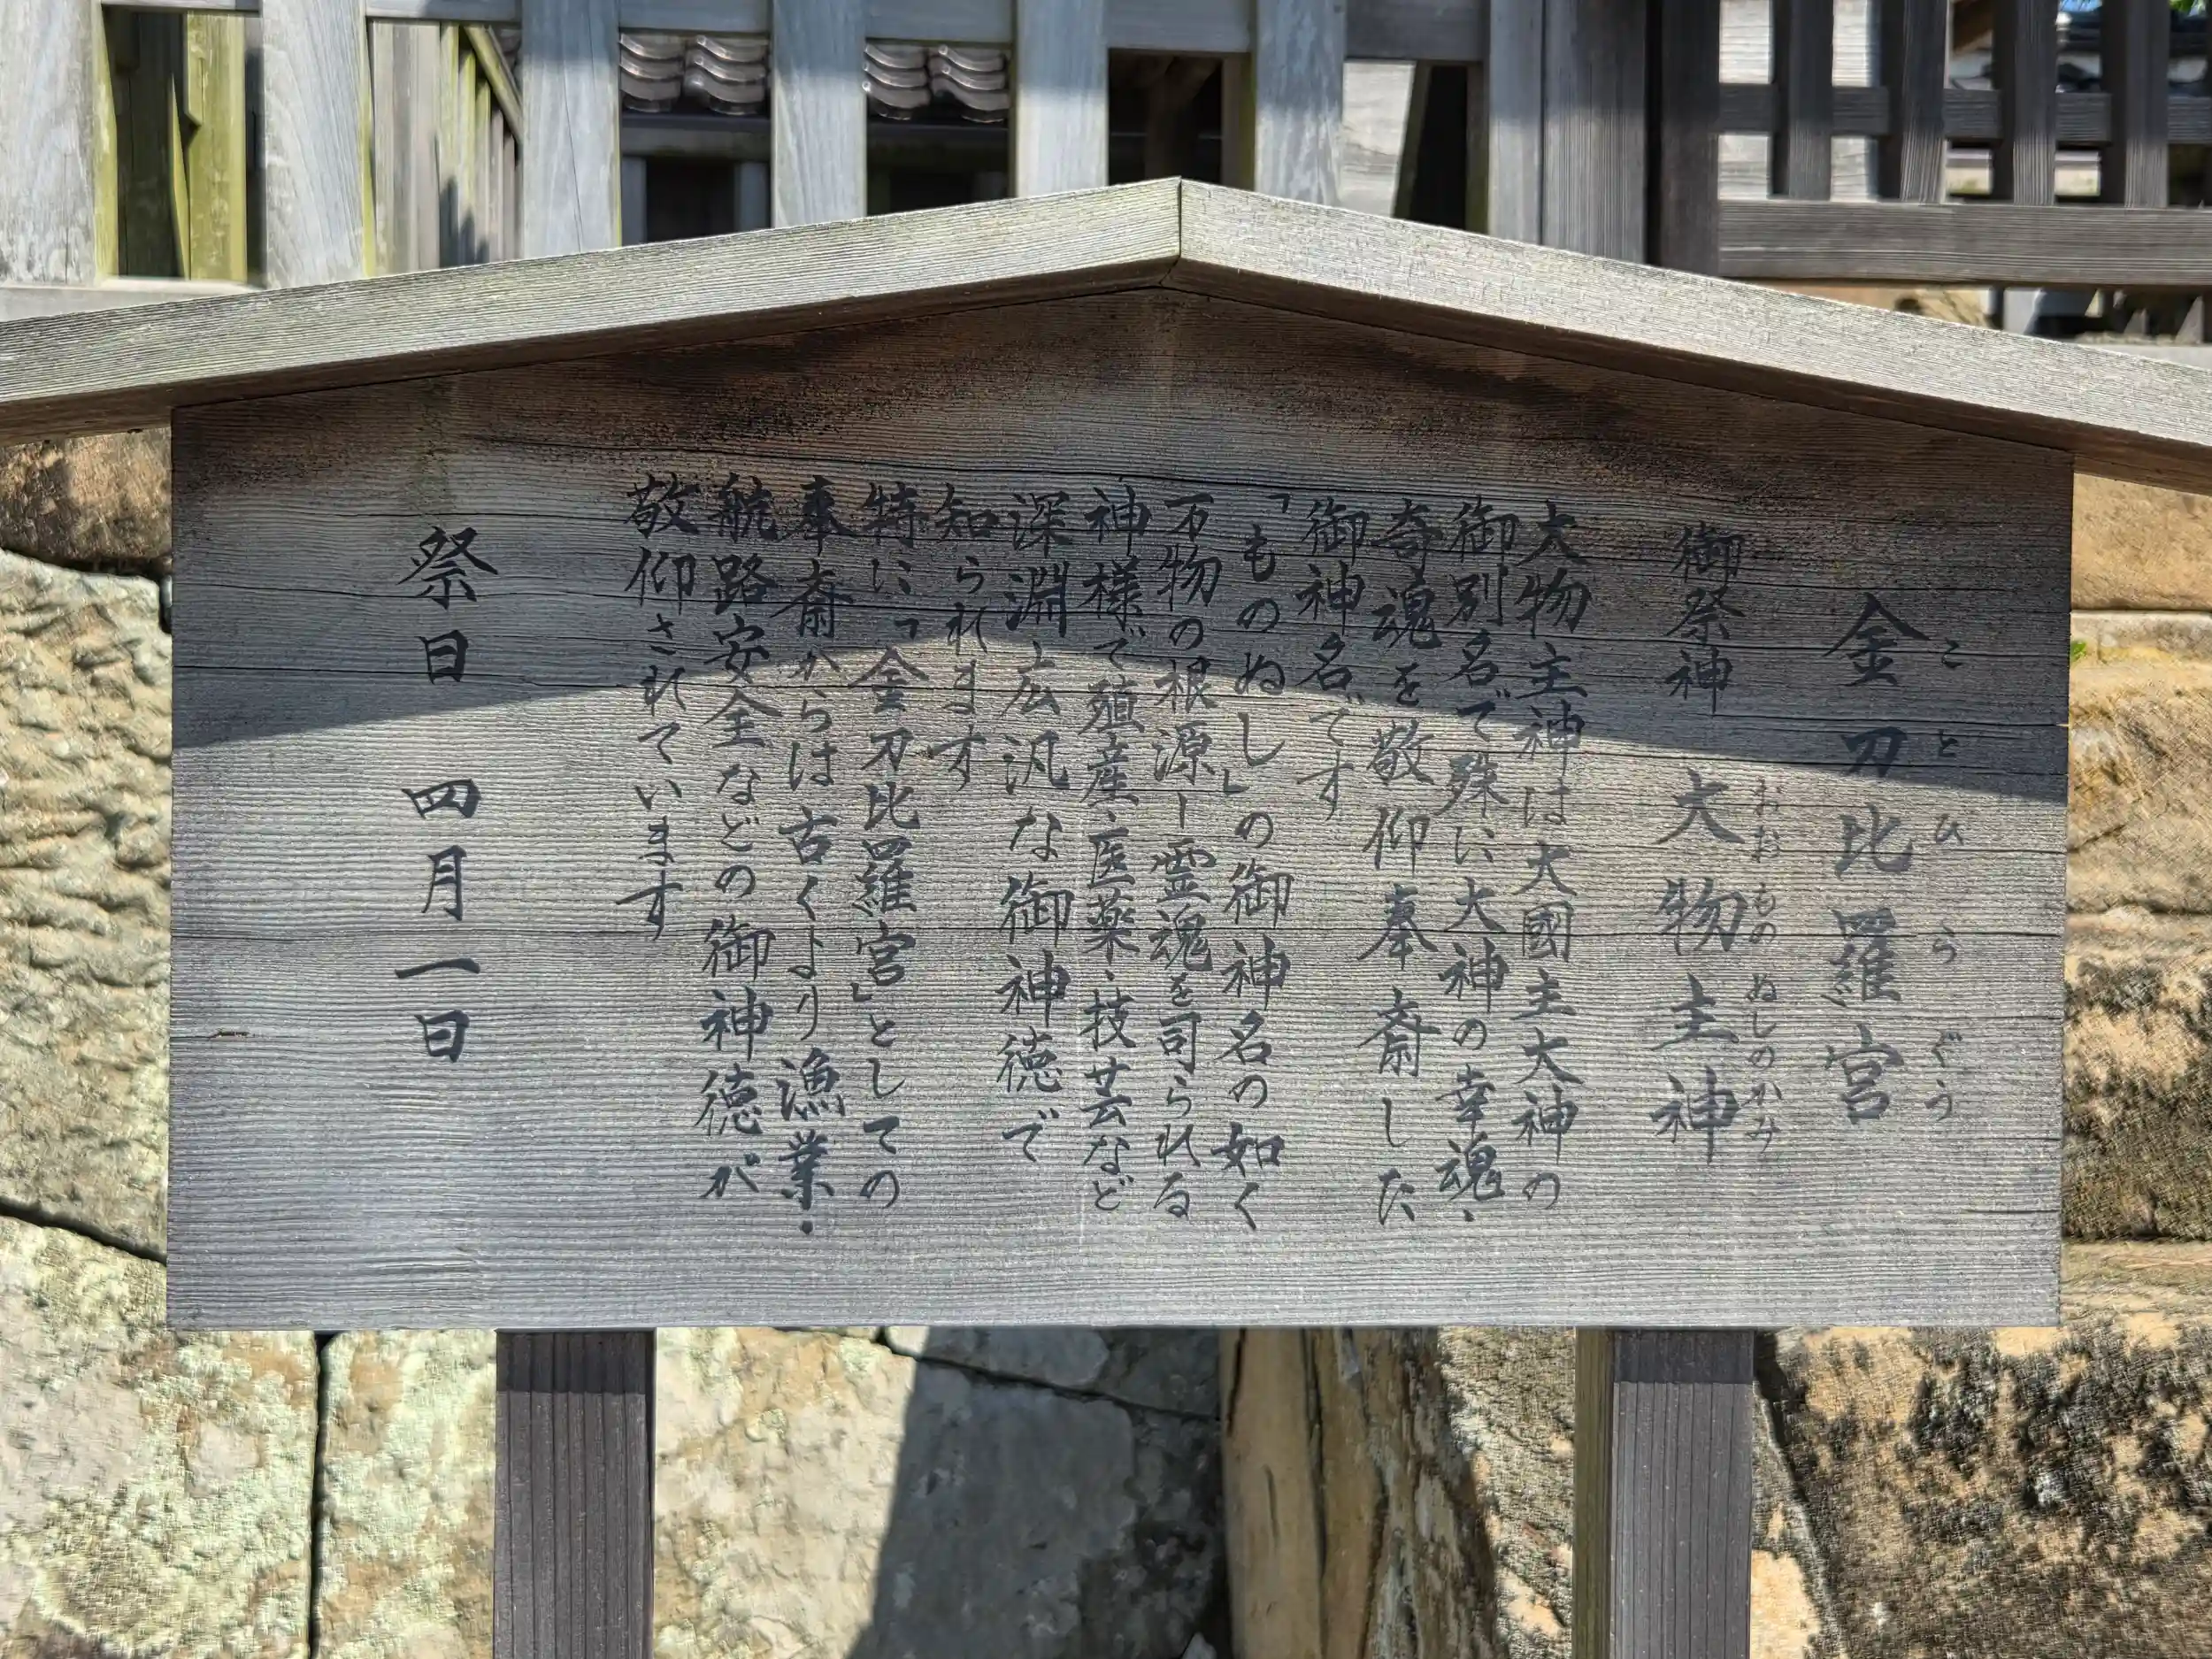 金刀比羅宮
ことひらぐう
御祭神 大物主神
おおものぬしのかみ
大物主神は大國主大神の
御別名で殊に大神の幸魂・
奇魂を敬仰奉斎した
御神名です
「ものぬし」の御神名の如く
万物の根源ー霊魂を司られる
神様で殖産・医薬・技芸など
深淵広汎な御神徳で
知られます
特に「金刀比羅宮」としての
奉斎からは古くより漁業・
航路安全などの御神徳が
敬仰されています
祭日 四月一日